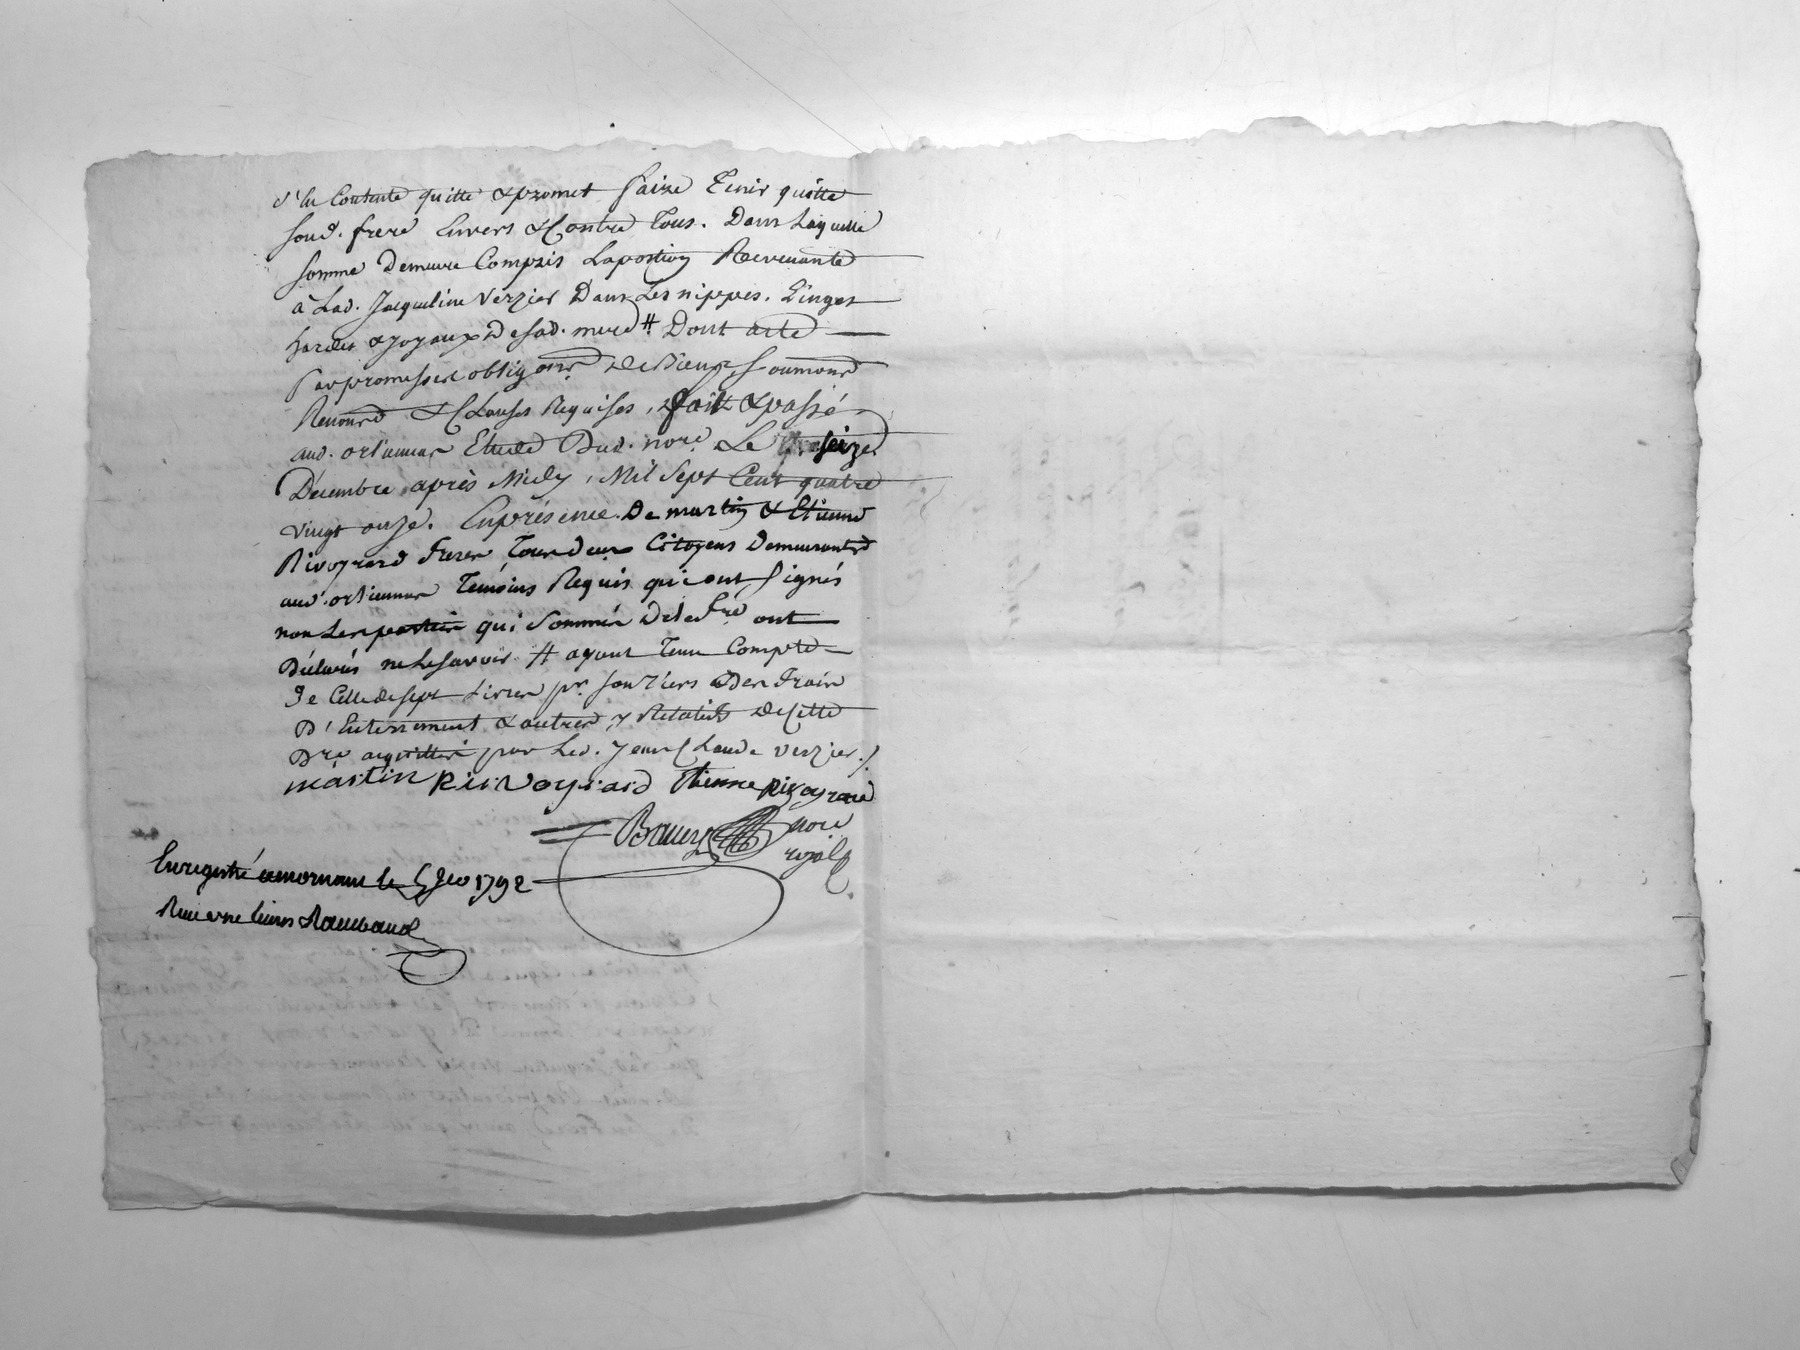 s'en Contente quitte & promet faire Tenir quitte
soud. frere Envers & Contre Tous. Dans Laquelle
somme Demeure Compris Laportion Revenante
à Lad. Jacqueline Verzier Dans Les nippes. Linges
hardes & Joyaux De sad. mere # Dont acte
par promesses obligons. De Biens, soumons
Renons & Clauses Requises, fait & passé
aud. orlienas Etude Dud. nore. Le seize
Décembre après Midy, Mil Sept Cent quatre
vingt onze. En présence De martin & Etienne
Rivoyrard freres Tous deux Citoyens Demeurants
aud. orlienas Temoins Requis qui ont signés
non Les parties qui Sommés De le fre ont
Déclarés ne Le savoir. # ayant Tenu Compte
De Celle de sept Livres pr. son Tiers Des frais
D'Enterrement & autres Relatifs De Cette
Dre acquittés par Led. Jean Claude Verzier ./.
martin Rivoyrard Etienne Rivoyrard
nore
royal
Enregistré a mornant le 5 Jer 1792
Reçu une livres Rambaud